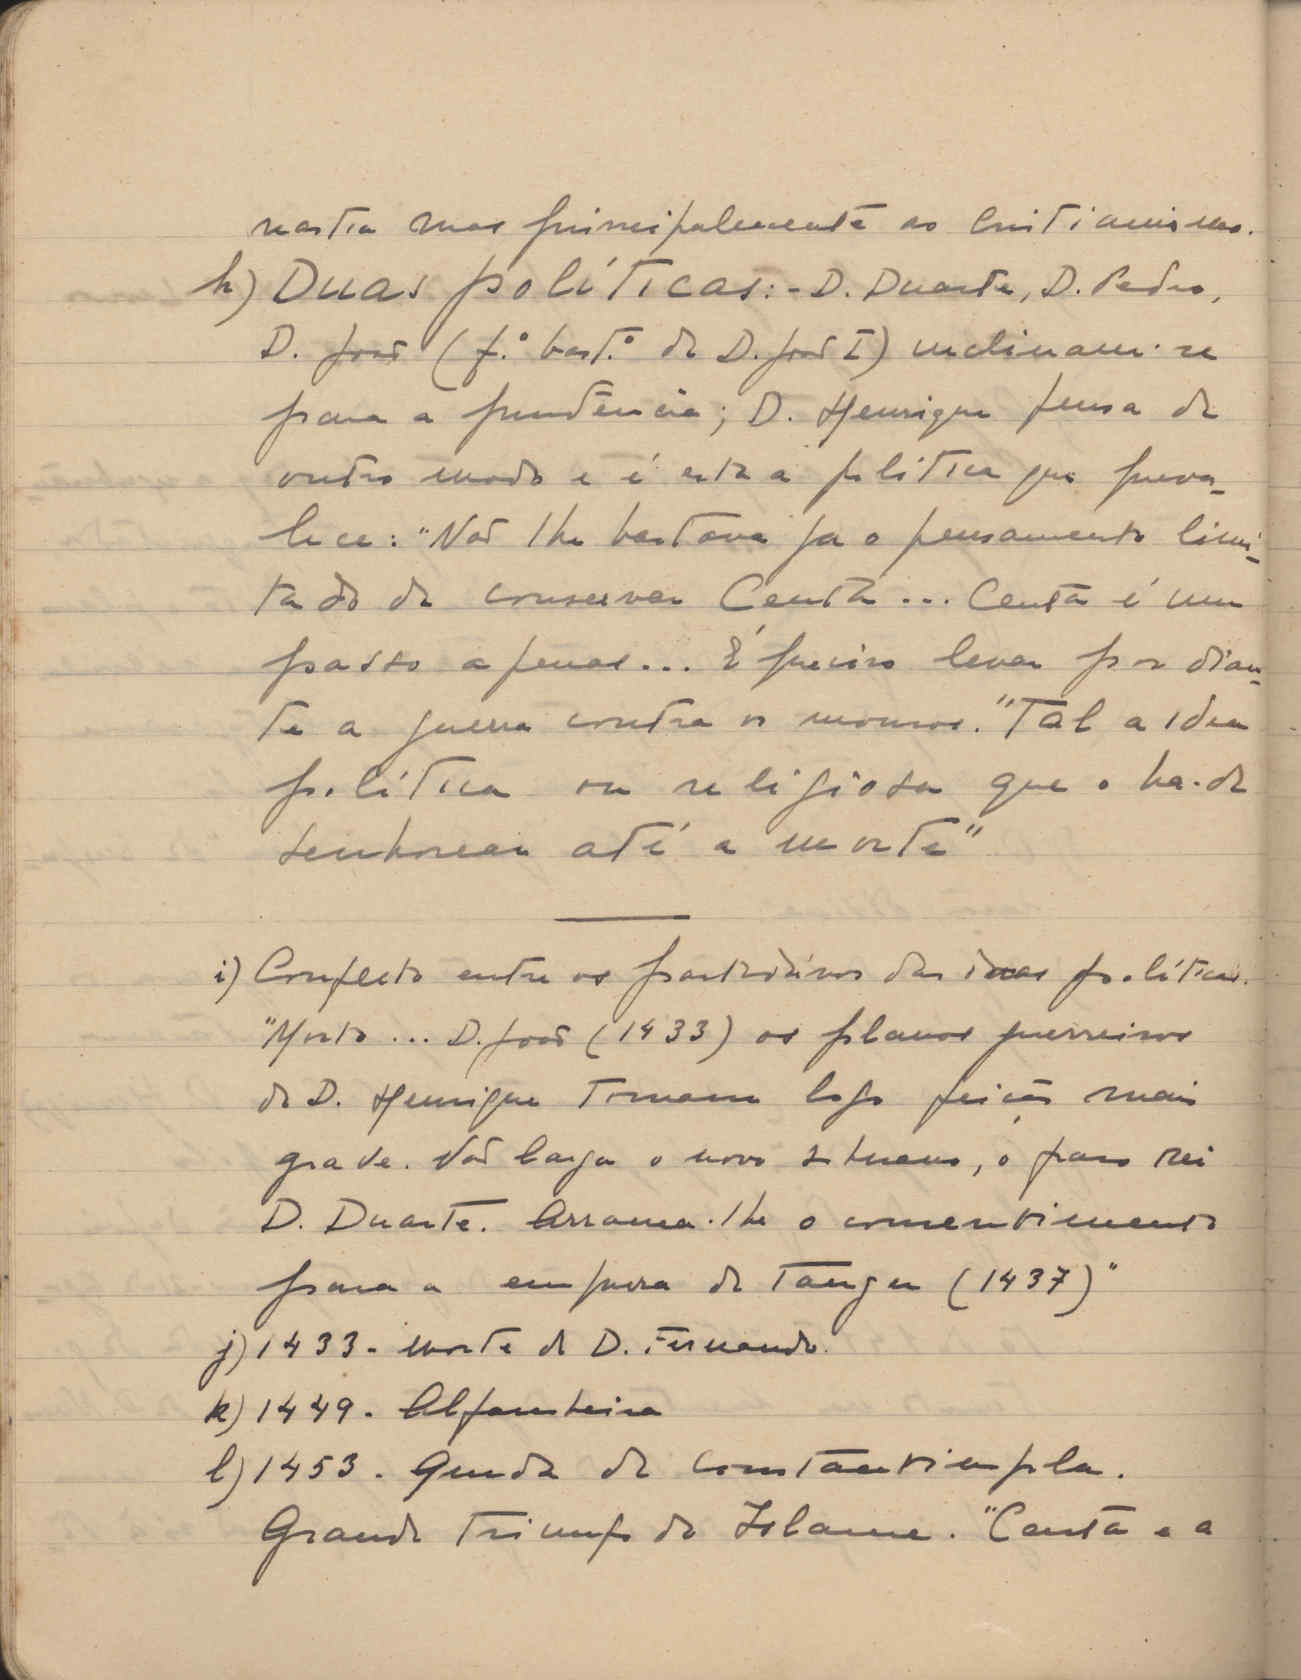 nastia mas principalmente ao Cristianismo.
h) Duas políticas: - D. Duarte, D. Pedro,
D. João (f.º bast.º de D. João I) inclinam-se
para a prudência; D. Henrique pensa de
outro modo e é esta a política que preva-
lece: "Não lhe bastava ja o pensamento limi-
tado de conservar Ceuta... Ceuta é um
passo apenas... É preciso levar por dian-
te a guerra contra os mouros." Tal a idea
política ou religiosa que o ha-de
senhorear até a morte"
i) Conflito entre os partidários das duas políticas.
"Morto ... D. João (1433) os planos guerreiros
de D. Henrique tomam logo feição mais
grave. Não larga o novo soberano, o fraco rei
D. Duarte. Arranca-lhe o consentimento
para a empresa de Tanger (1437)"
j) 1433 - morte de D. Fernando.
k) 1449 - Alfarrobeira
l) 1453 - Queda de Constantinopla.
Grande triunfo do Islame. "Ceuta e a